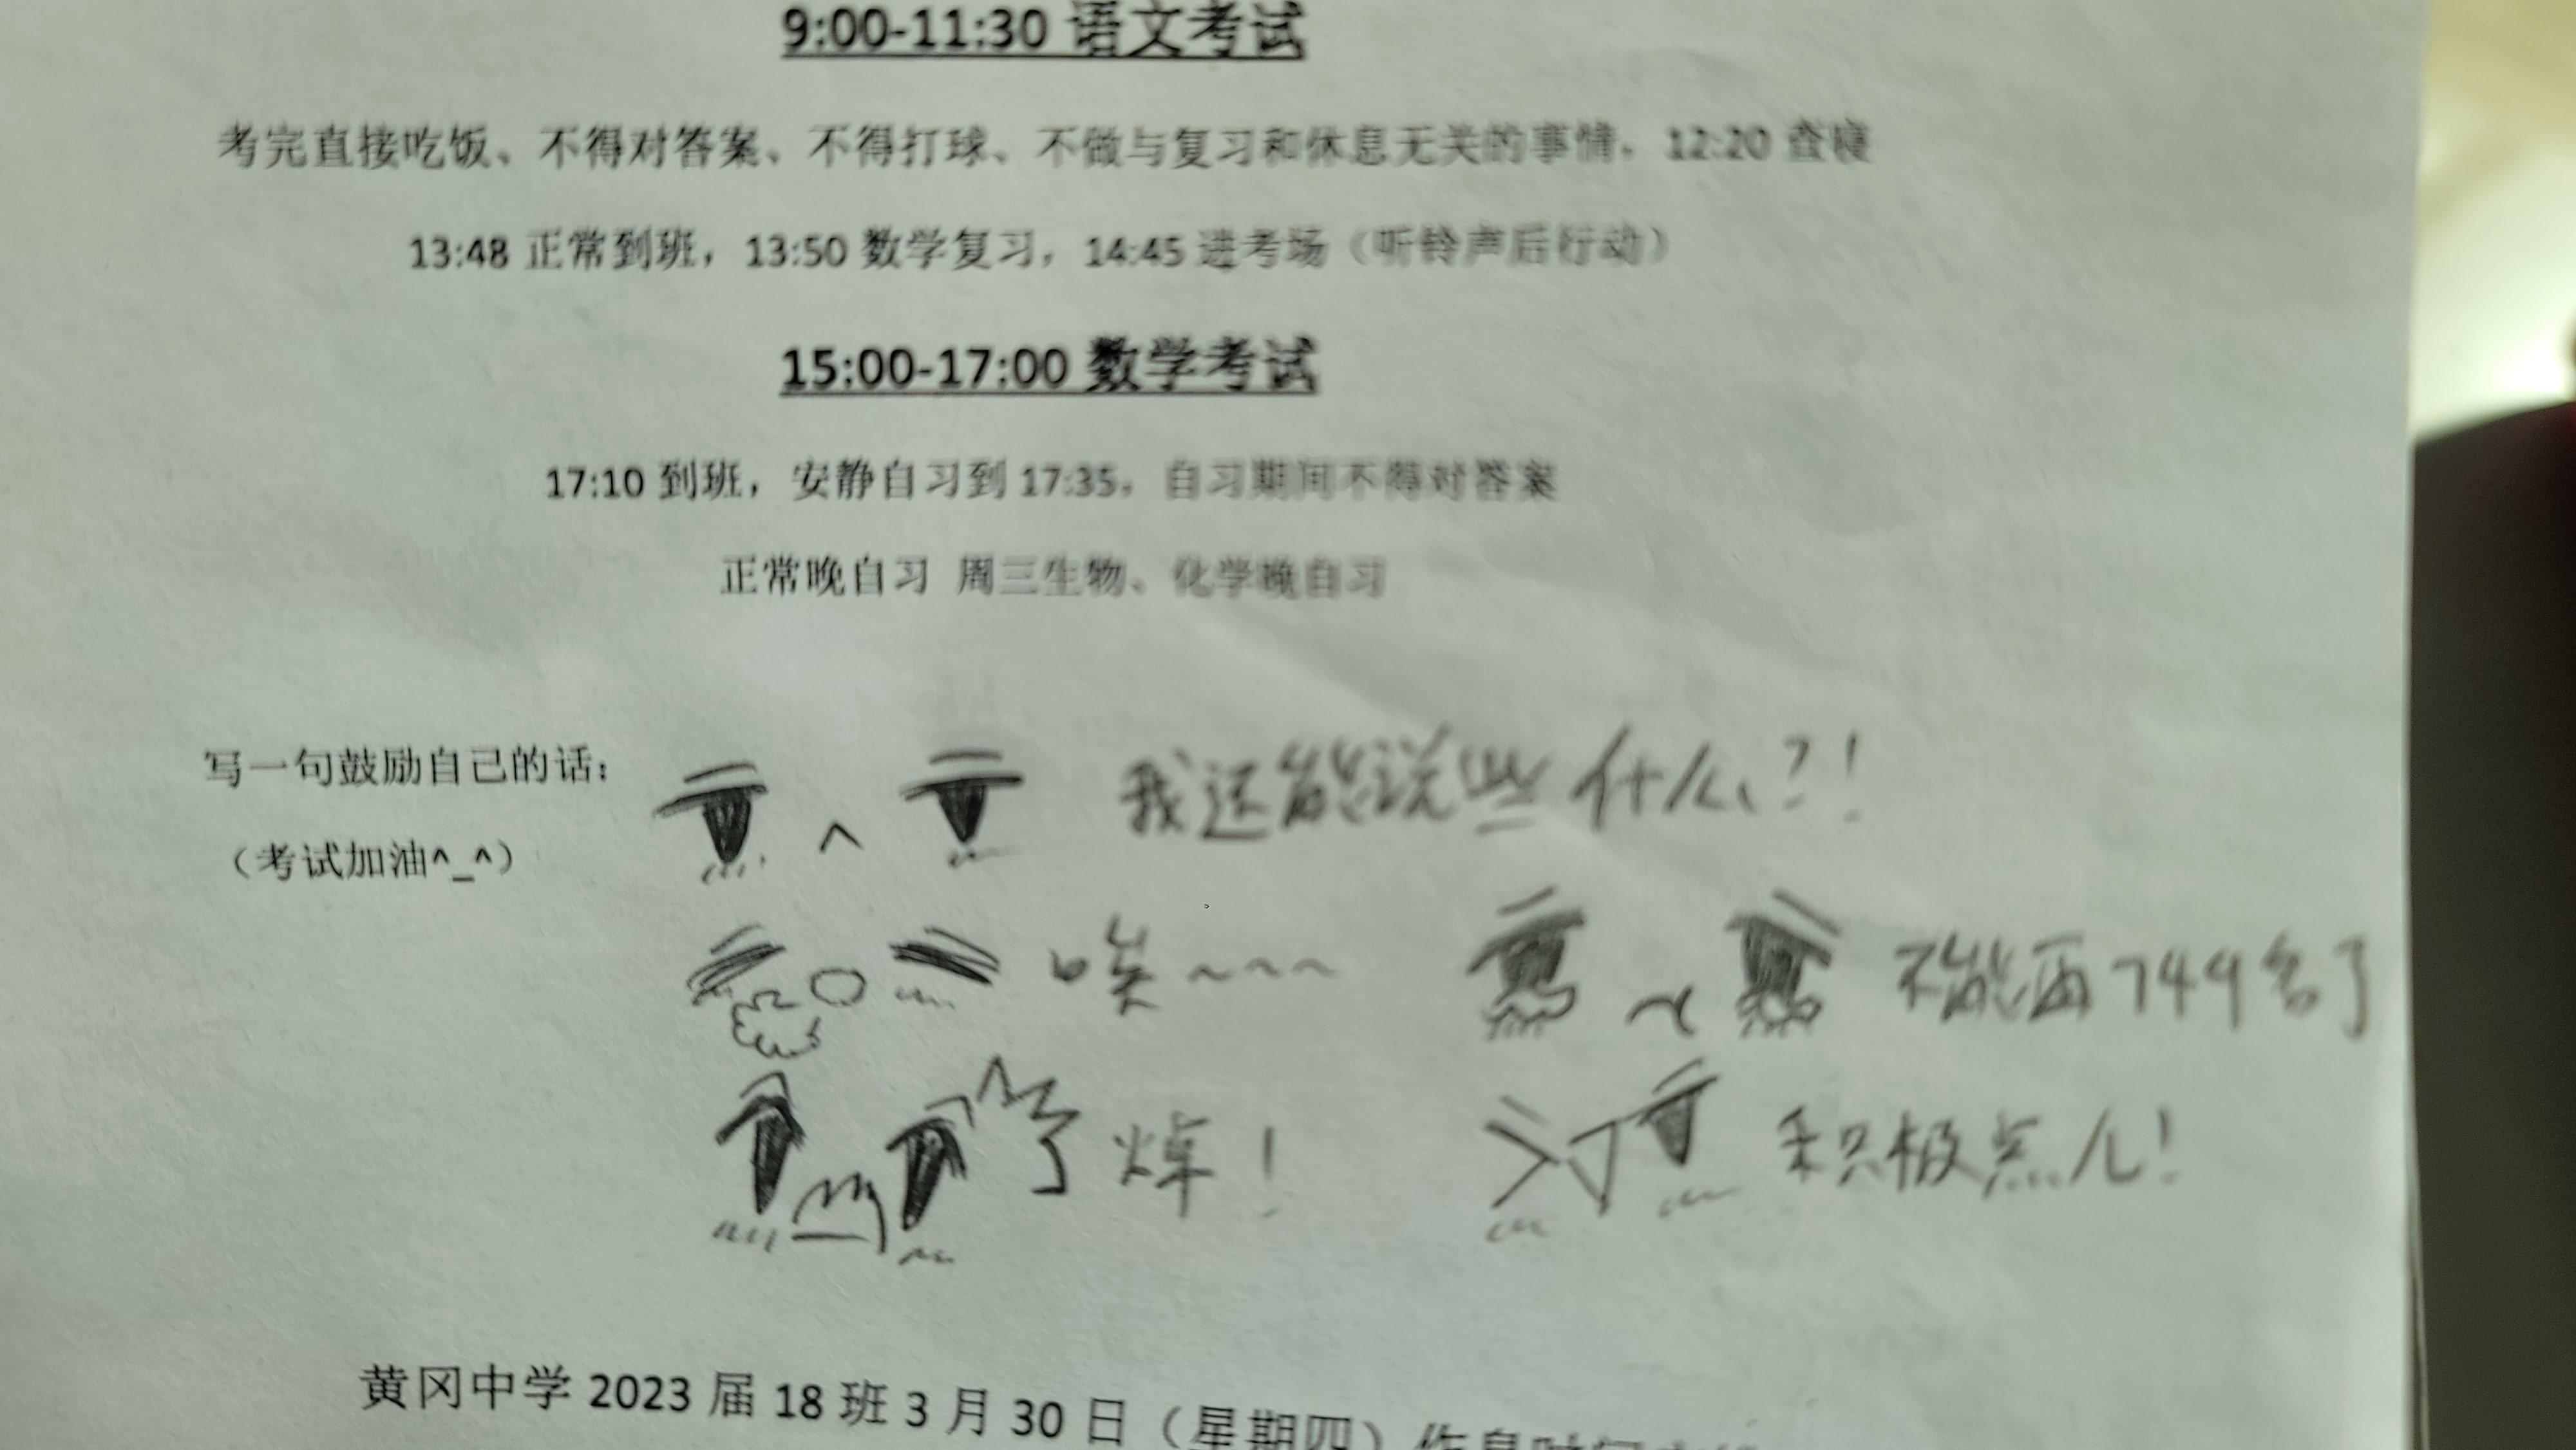 9:00-11:30 语文考试
考完直接吃饭、不得对答案、不得打球、不做与复习和休息无关的事情，12:20 查寝
13:48 正常到班，13:50 数学复习，14:45 进考场（听铃声后行动）
15:00-17:00 数学考试
17:10 到班，安静自习到 17:35，自习期间不得对答案
正常晚自习 周三生物、化学晚自习
写一句鼓励自己的话：
我还能说些什么?!
（考试加油^_^）
唉~~~
不能再749名了
焯！
积极点儿！
黄冈中学 2023 届 18 班 3 月 30 日（星期四）作息时间